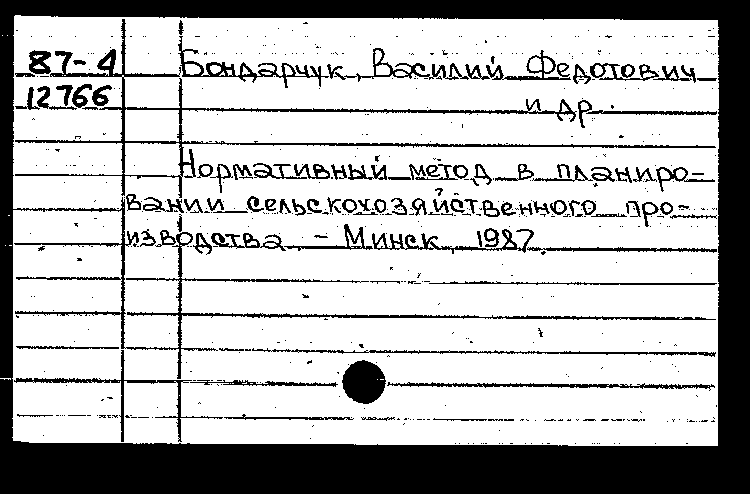 87-4 Бондарчук, Василий Федотович
12766 и др.
Нормативный метод в планиро-
вании сельскохозяйственного про-
изводства. - Минск, 1987.